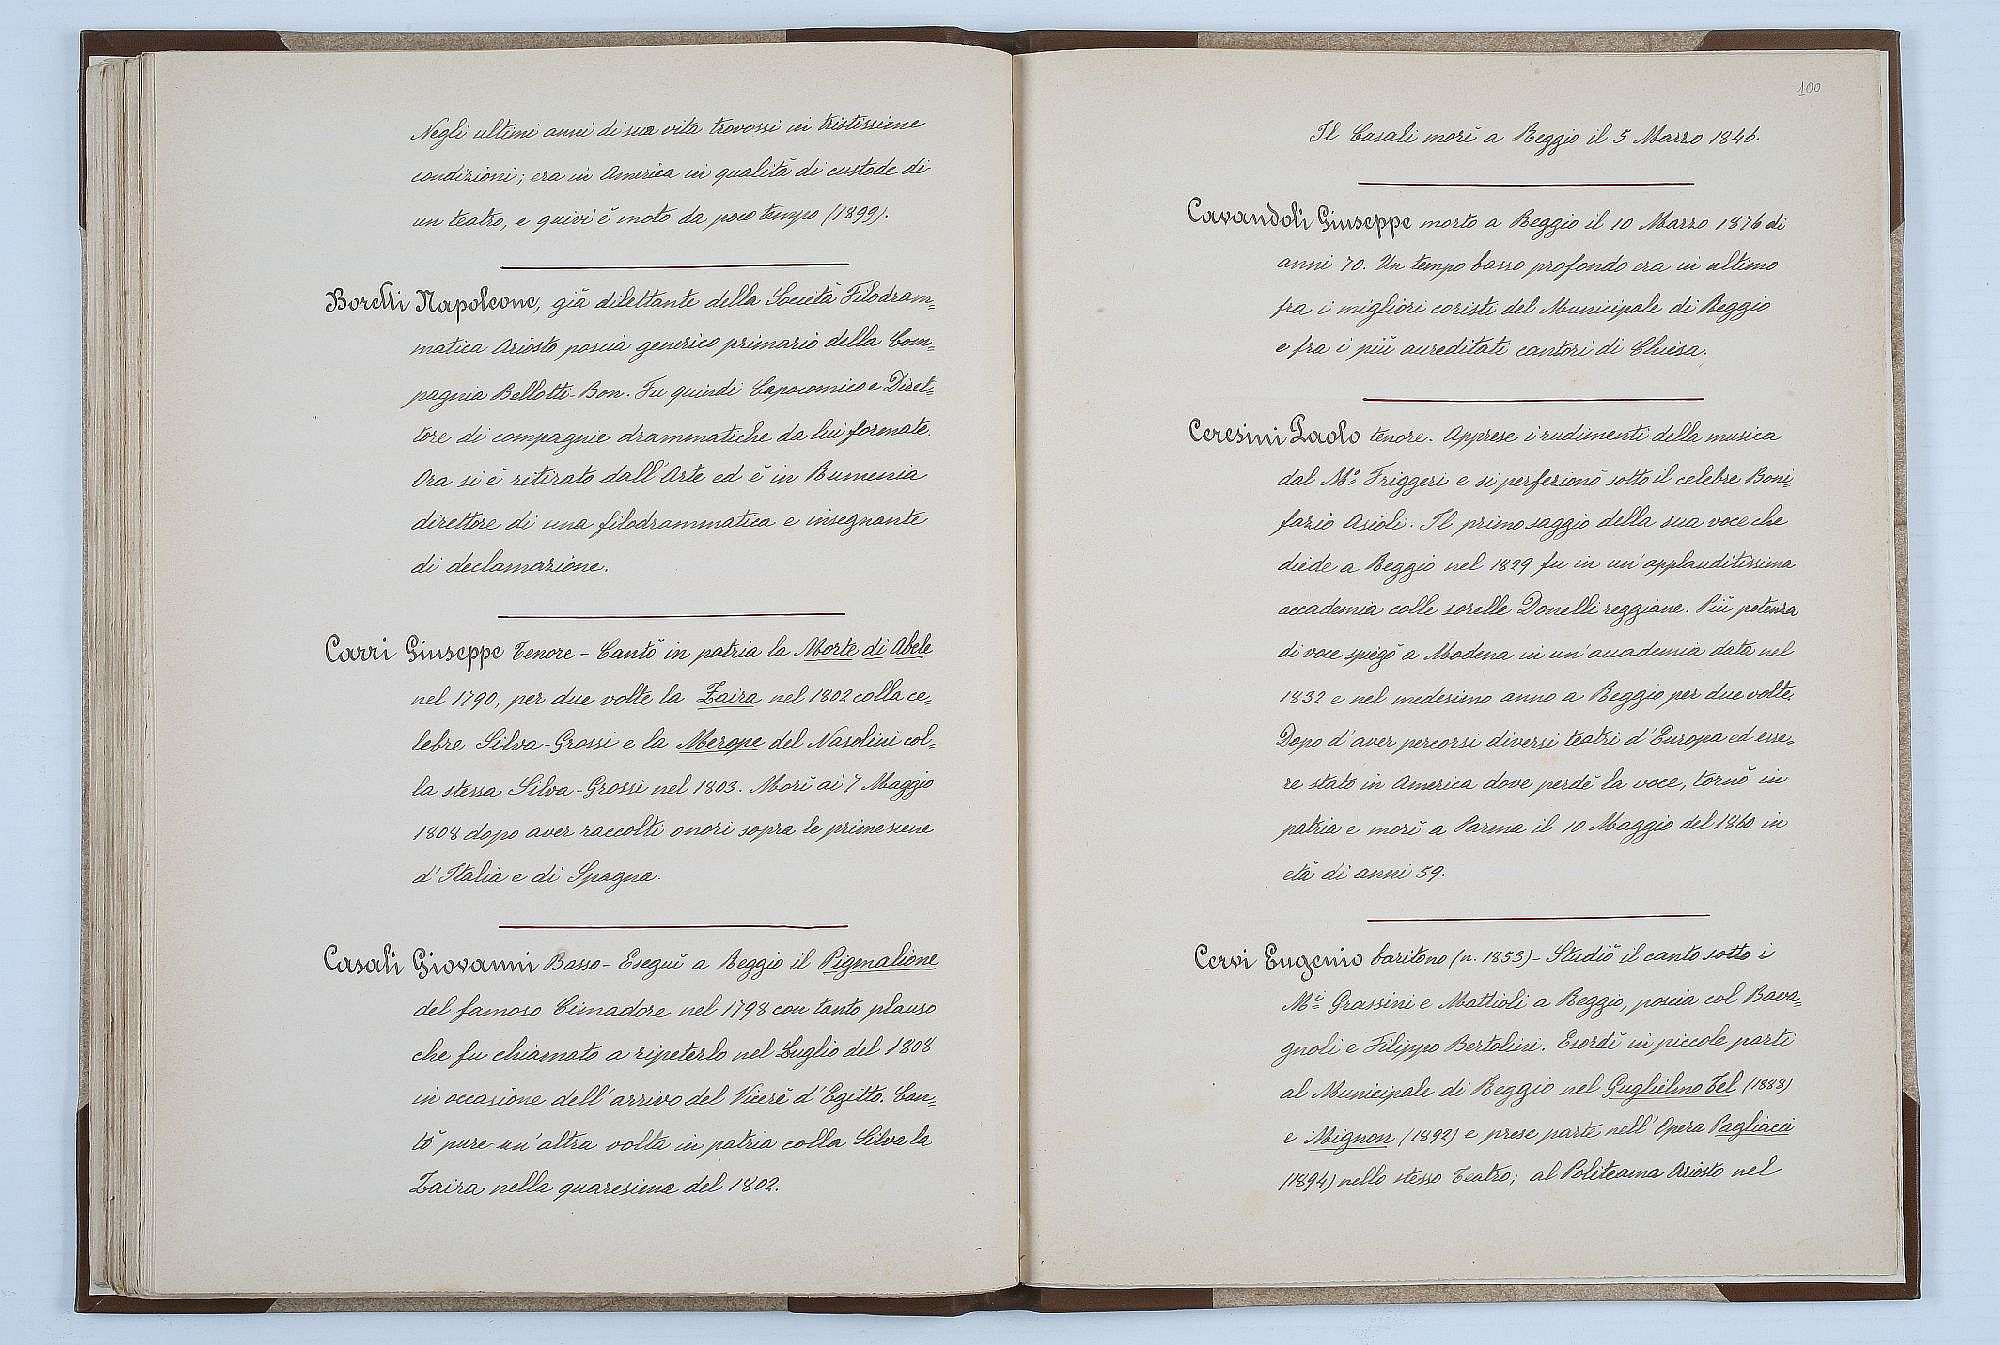 Negli ultimi anni di sua vita trovossi in tristissime
condizioni; era in America in qualità di custode di
un teatro, e quivi è moto da poco tempo (1899).
Borelli Napoleone, già dilettante della Società Filodram=
matica Ariosto poscia generico primario della Com=
pagnia Bellotti-Bon. Fu quindi Capocomico e Diret=
tore di compagnie drammatiche da lui formate.
Ora si è ritirato dall'Arte ed è in Rumenia
direttore di una filodrammatica e insegnante
di declamazione.
Carri Giuseppe Tenore - Cantò in patria la Morte di Abele
nel 1790, per due volte la Zaira nel 1802 colla ce=
lebre Silva-Grossi e la Merope del Nasolini col=
la stessa Silva-Grossi nel 1803. Morì ai 7 Maggio
1808 dopo aver raccolti onori sopra le prime scene
d'Italia e di Spagna.
Casali Giovanni Basso - Eseguì a Reggio il Pigmalione
del famoso Cimadore nel 1798 con tanto plauso
che fu chiamato a ripeterlo nel Luglio del 1808
in occasione dell'arrivo del Vicerè d'Egitto. Can=
tò pure un'altra volta in patria colla Silva la
Zaira nella quaresima del 1802.
100
Il Casali morì a Reggio il 5 Marzo 1846.
Cavandoli Giuseppe morto a Reggio il 10 Marzo 1876 di
anni 70. Un tempo basso profondo era in ultimo
fra i migliori coristi del Municipale di Reggio
e fra i più accreditati cantori di Chiesa.
Ceresini Paolo tenore. Apprese i rudimenti della musica
dal M.o Friggeri e si perfezionò sotto il celebre Boni=
fazio Asioli. Il primo saggio della sua voce che
diede a Reggio nel 1829 fu in un'applauditissima
accademia colle sorelle Donelli reggiane. Più potenza
di voce spiegò a Modena in un'accademia data nel
1832 e nel medesimo anno a Reggio per due volte.
Dopo d'aver percorsi diversi teatri d'Europa ed esse=
re stato in America dove perdè la voce, tornò in
patria e morì a Parma il 10 Maggio del 1860 in
età di anni 59.
Cervi Eugenio baritono (n. 1853) - Studiò il canto sotto i
M.i Grassini e Mattioli a Reggio, poscia col Rava=
gnoli e Filippo Bertolini. Esordì in piccole parti
al Municipale di Reggio nel Guglielmo Tel (1883)
e Mignon (1892) e prese parte nell'Opera Pagliacci
(1894) nello stesso Teatro; al Politeama Ariosto nel